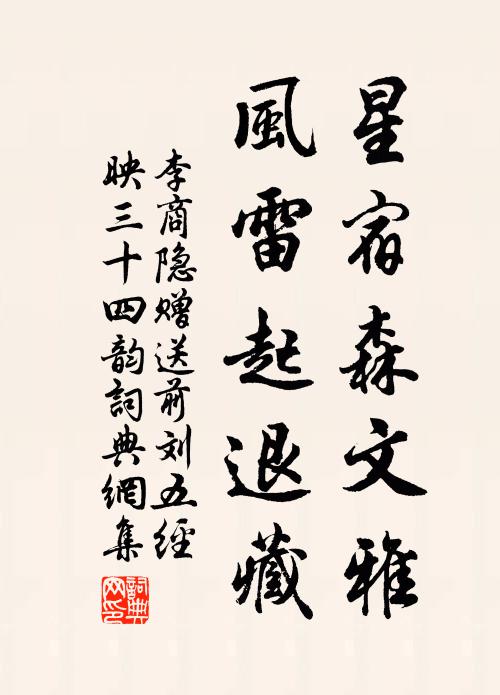 星宿森文雅
風雷起退藏
李商隐赠送前刘五經
映三十四韵詞典網集